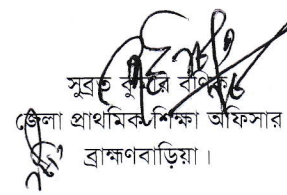 সুব্রত কুমার বণিক
জেলা প্রাথমিক শিক্ষা অফিসার
ব্রাহ্মণবাড়িয়া।